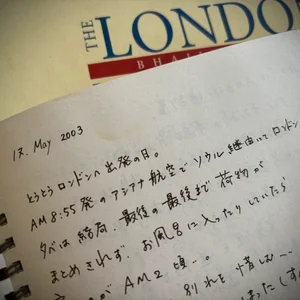 THE
LONDO
BHA
17. May 2003
とうとうロンドンへ出発の日。
AM 8:55 発のアシアナ航空でソウル経由にてロンドン
夕べは結局、最後の最後まで荷物が
まとめきれず、お風呂に入ったりしていたら
が AM2 頃…。
別れを惜しむ…